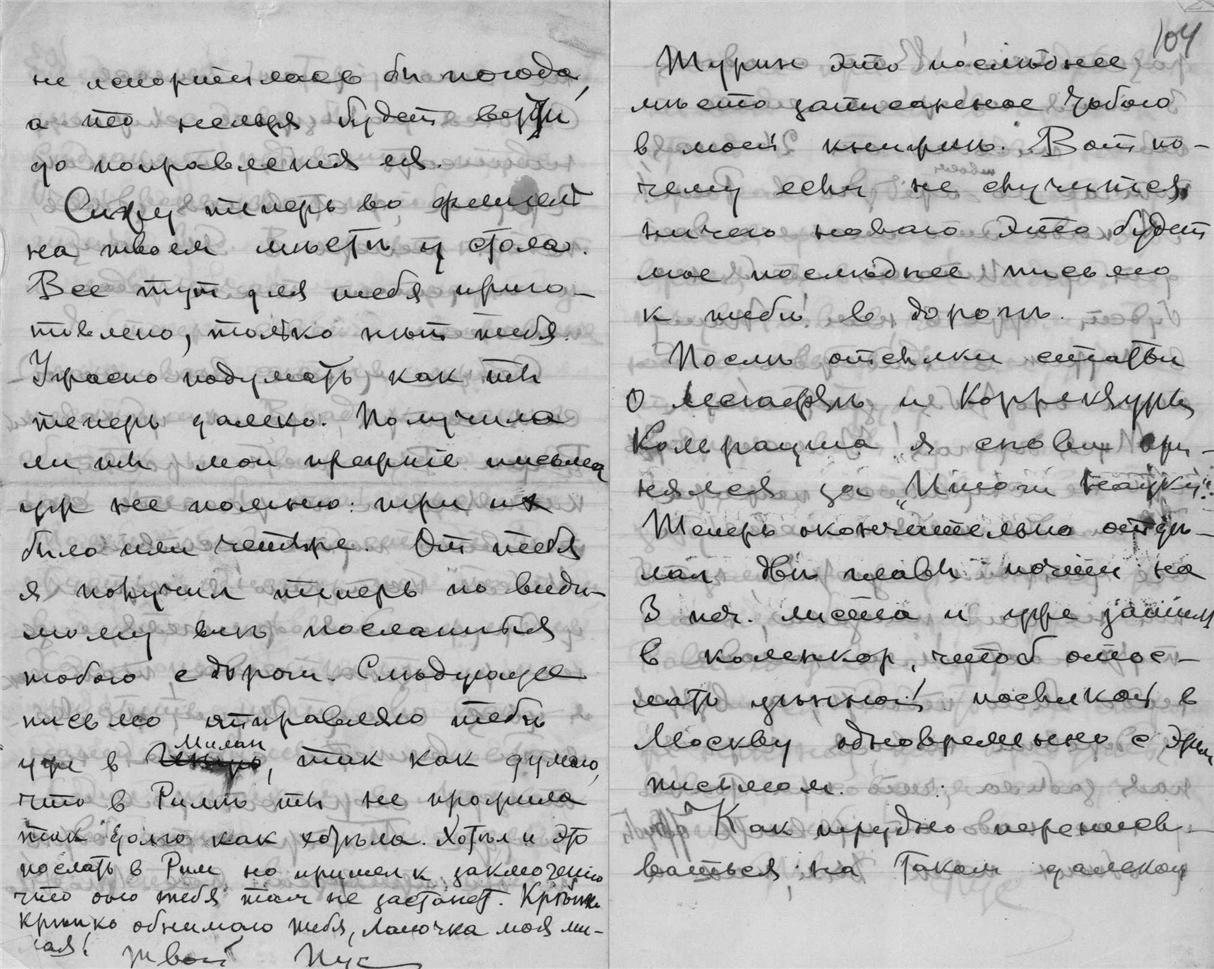 не испортилась бы погода,
а то нельзя будет везти
до поправленiя ея.
Сижу теперь во флигелѣ
на твоем мѣстѣ у стола.
Все тут для тебя приго-
товлено, только нѣт тебя.
Ужасно подумать, как ты
теперь далеко. Получила
ли ты мои прежнiе письма
уж не помню: три их
было или четыре. От тебя
я получил теперь по види-
мому всѣ посланныя
тобою с дороги. Слѣдующее
письмо отправляю тебѣ
уже в Милан, так как думаю,
что в Римѣ ты не прожила
так долго как хотѣла. Хотѣл и это
послать в Рим но пришел к заключенiю
что оно тебя там не застанет. Крѣпко
крѣпко обнимаю тебя, лапочка моя ми-
лая!
Твой
104
Турин это послѣднее
мѣсто записанное тобою
в моей книжкѣ. Вот по-
чему если не случится
ничего новаго это будет
мое послѣднее письмо
к тебѣ в дорогѣ.
Послѣ отсылки статьи
о и корректуры
я снова при-
нялся за "Итоги науки".
Теперь окончательно отдѣ-
лал двѣ главы почти на
3 печ. листа и уже зашил
в коленкор, чтоб отос-
лать цѣнной посылкой в
Москву одновременно с этим
письмом.
Как трудно переписы-
ваться на таком далеком